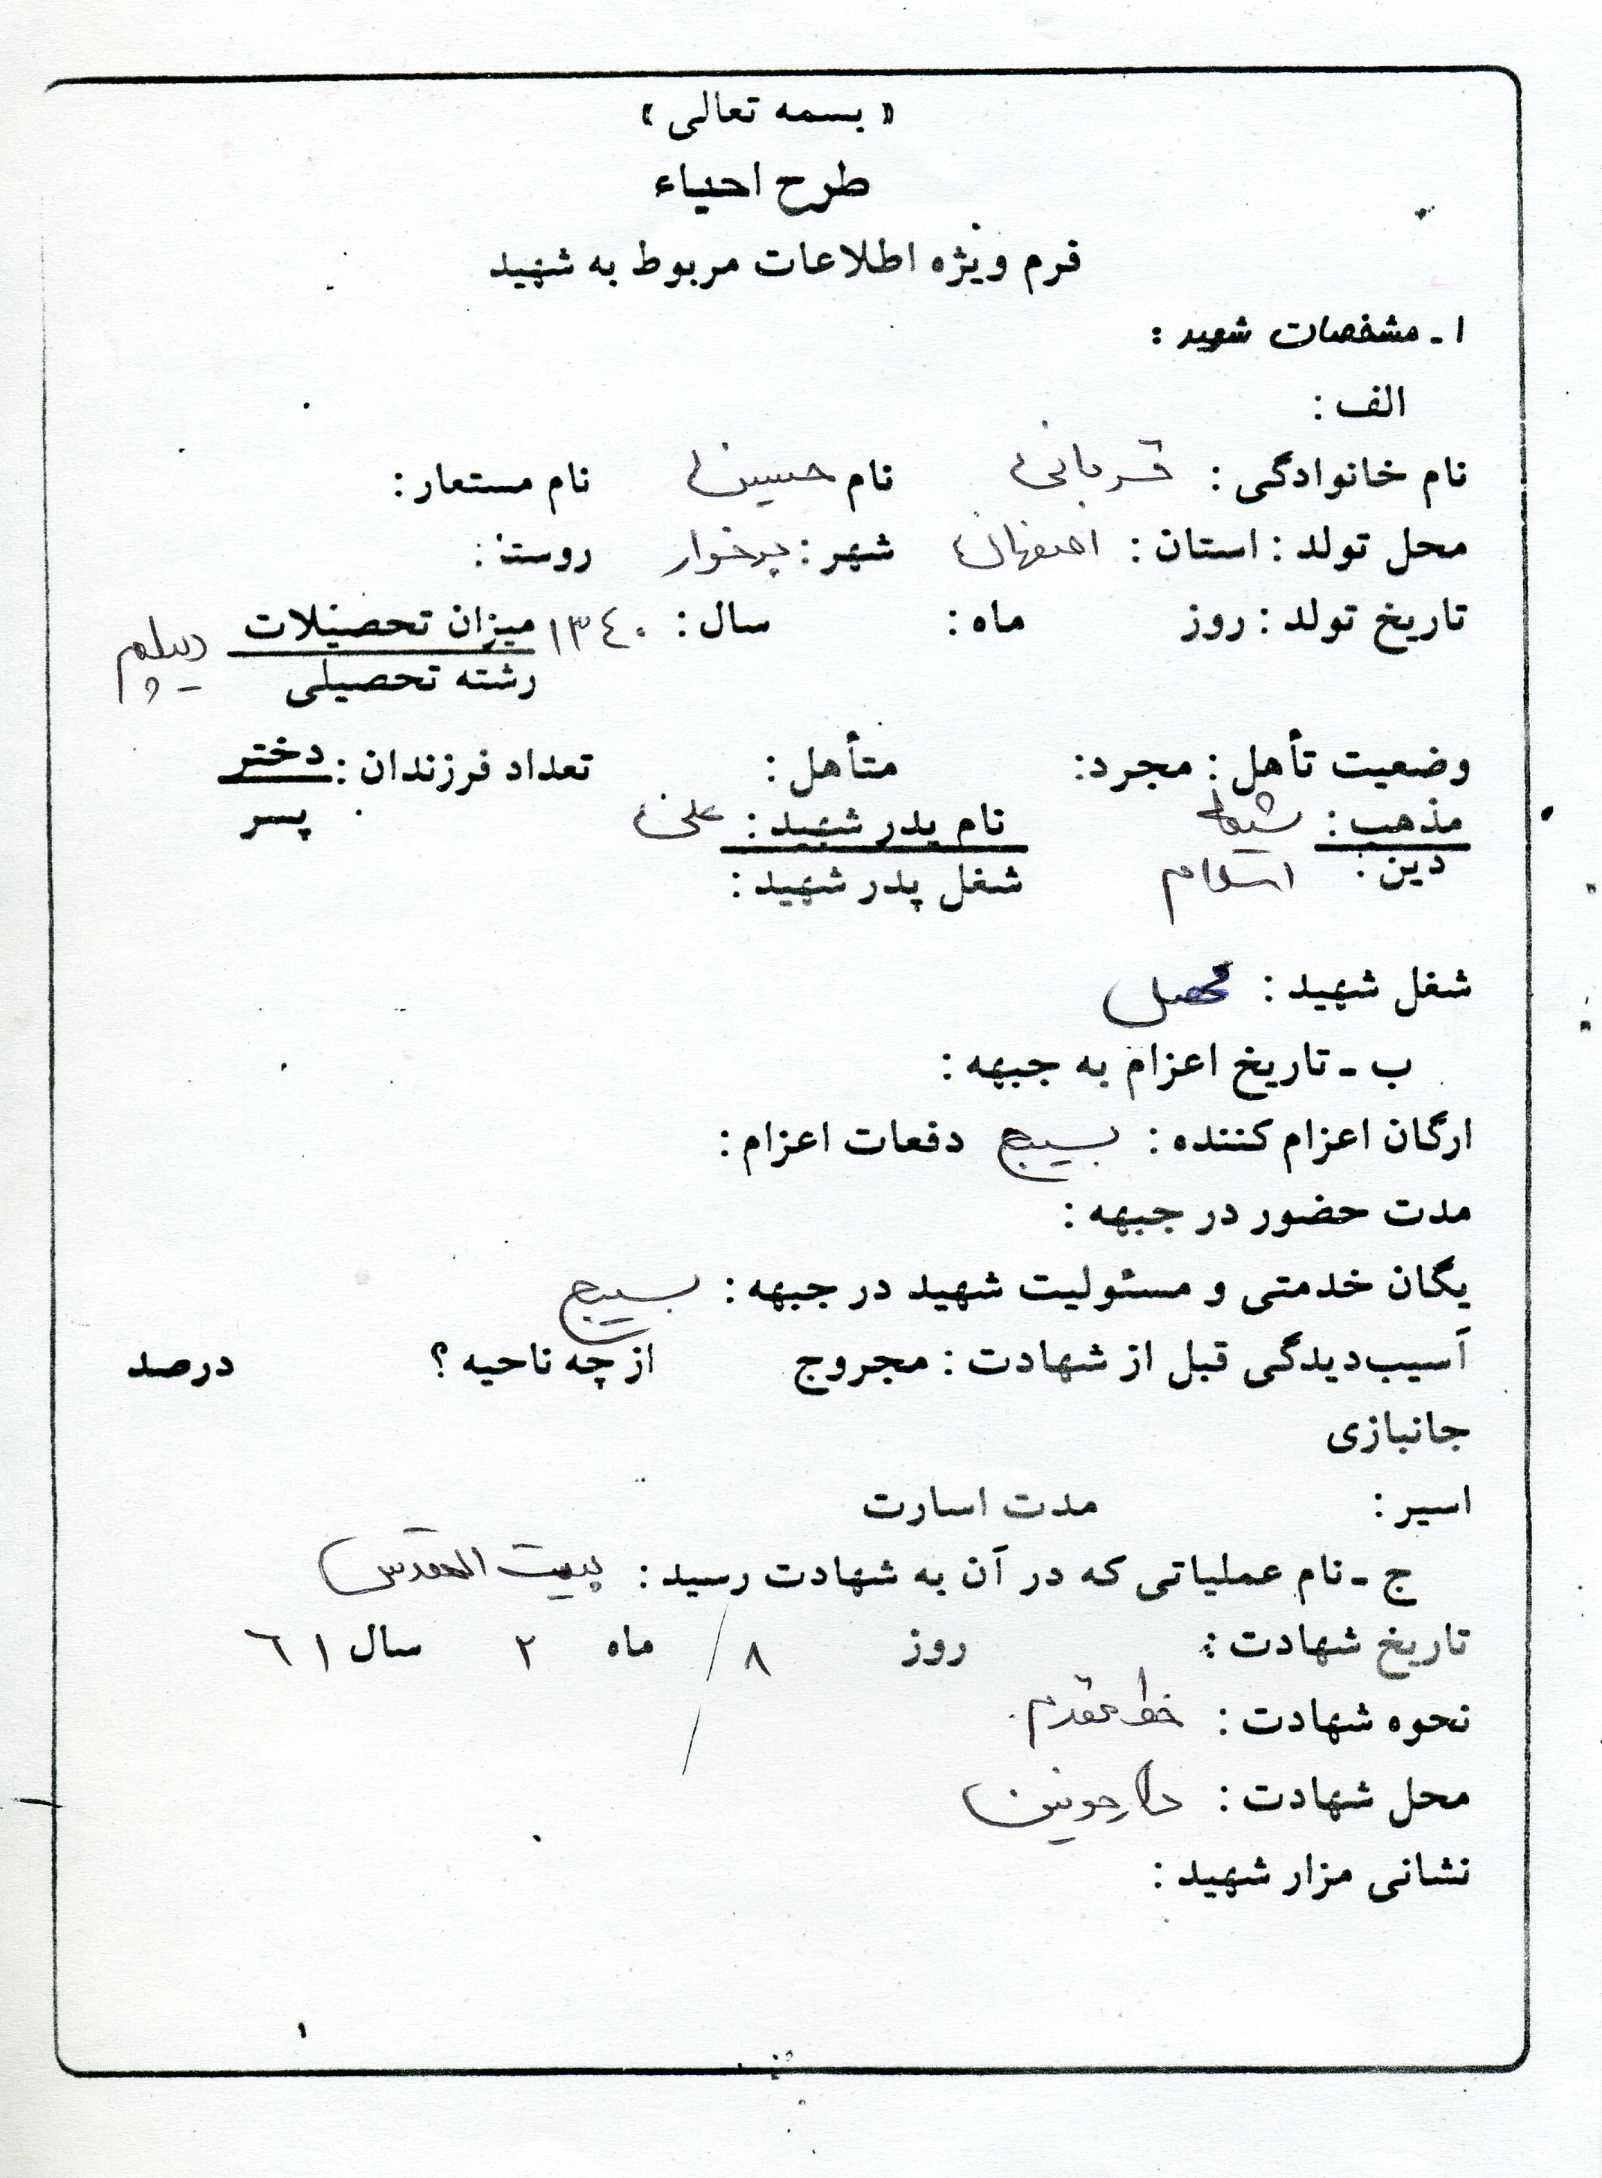 « بسمه تعالی »
طرح احیاء
فرم ویژه اطلاعات مربوط به شهید
۱ ـ مشخصات شهید :
الف :
نام خانوادگی : قربانی نام حسین نام مستعار :
محل تولد : استان : اصفهان شهر : برخوار روستا :
تاریخ تولد : روز ماه : سال : ۱۳۴۰ میزان تحصیلات دیپلم
رشته تحصیلی
وضعیت تأهل : مجرد : متأهل : تعداد فرزندان : دختر
پسر
مذهب : شیعه نام پدر شهید : علی
دین : اسلام شغل پدر شهید :
شغل شهید : محصل
ب ـ تاریخ اعزام به جبهه :
ارگان اعزام کننده : بسیج دفعات اعزام :
مدت حضور در جبهه :
یگان خدمتی و مسئولیت شهید در جبهه : بسیج
آسیب‌دیدگی قبل از شهادت : مجروح از چه ناحیه ؟ درصد
جانبازی
اسیر : مدت اسارت
ج ـ نام عملیاتی که در آن به شهادت رسید : بیت المقدس
تاریخ شهادت : روز ۸ / ماه ۲ سال ۶۱
نحوه شهادت : خط مقدم
محل شهادت : دارخوین
نشانی مزار شهید :
۱